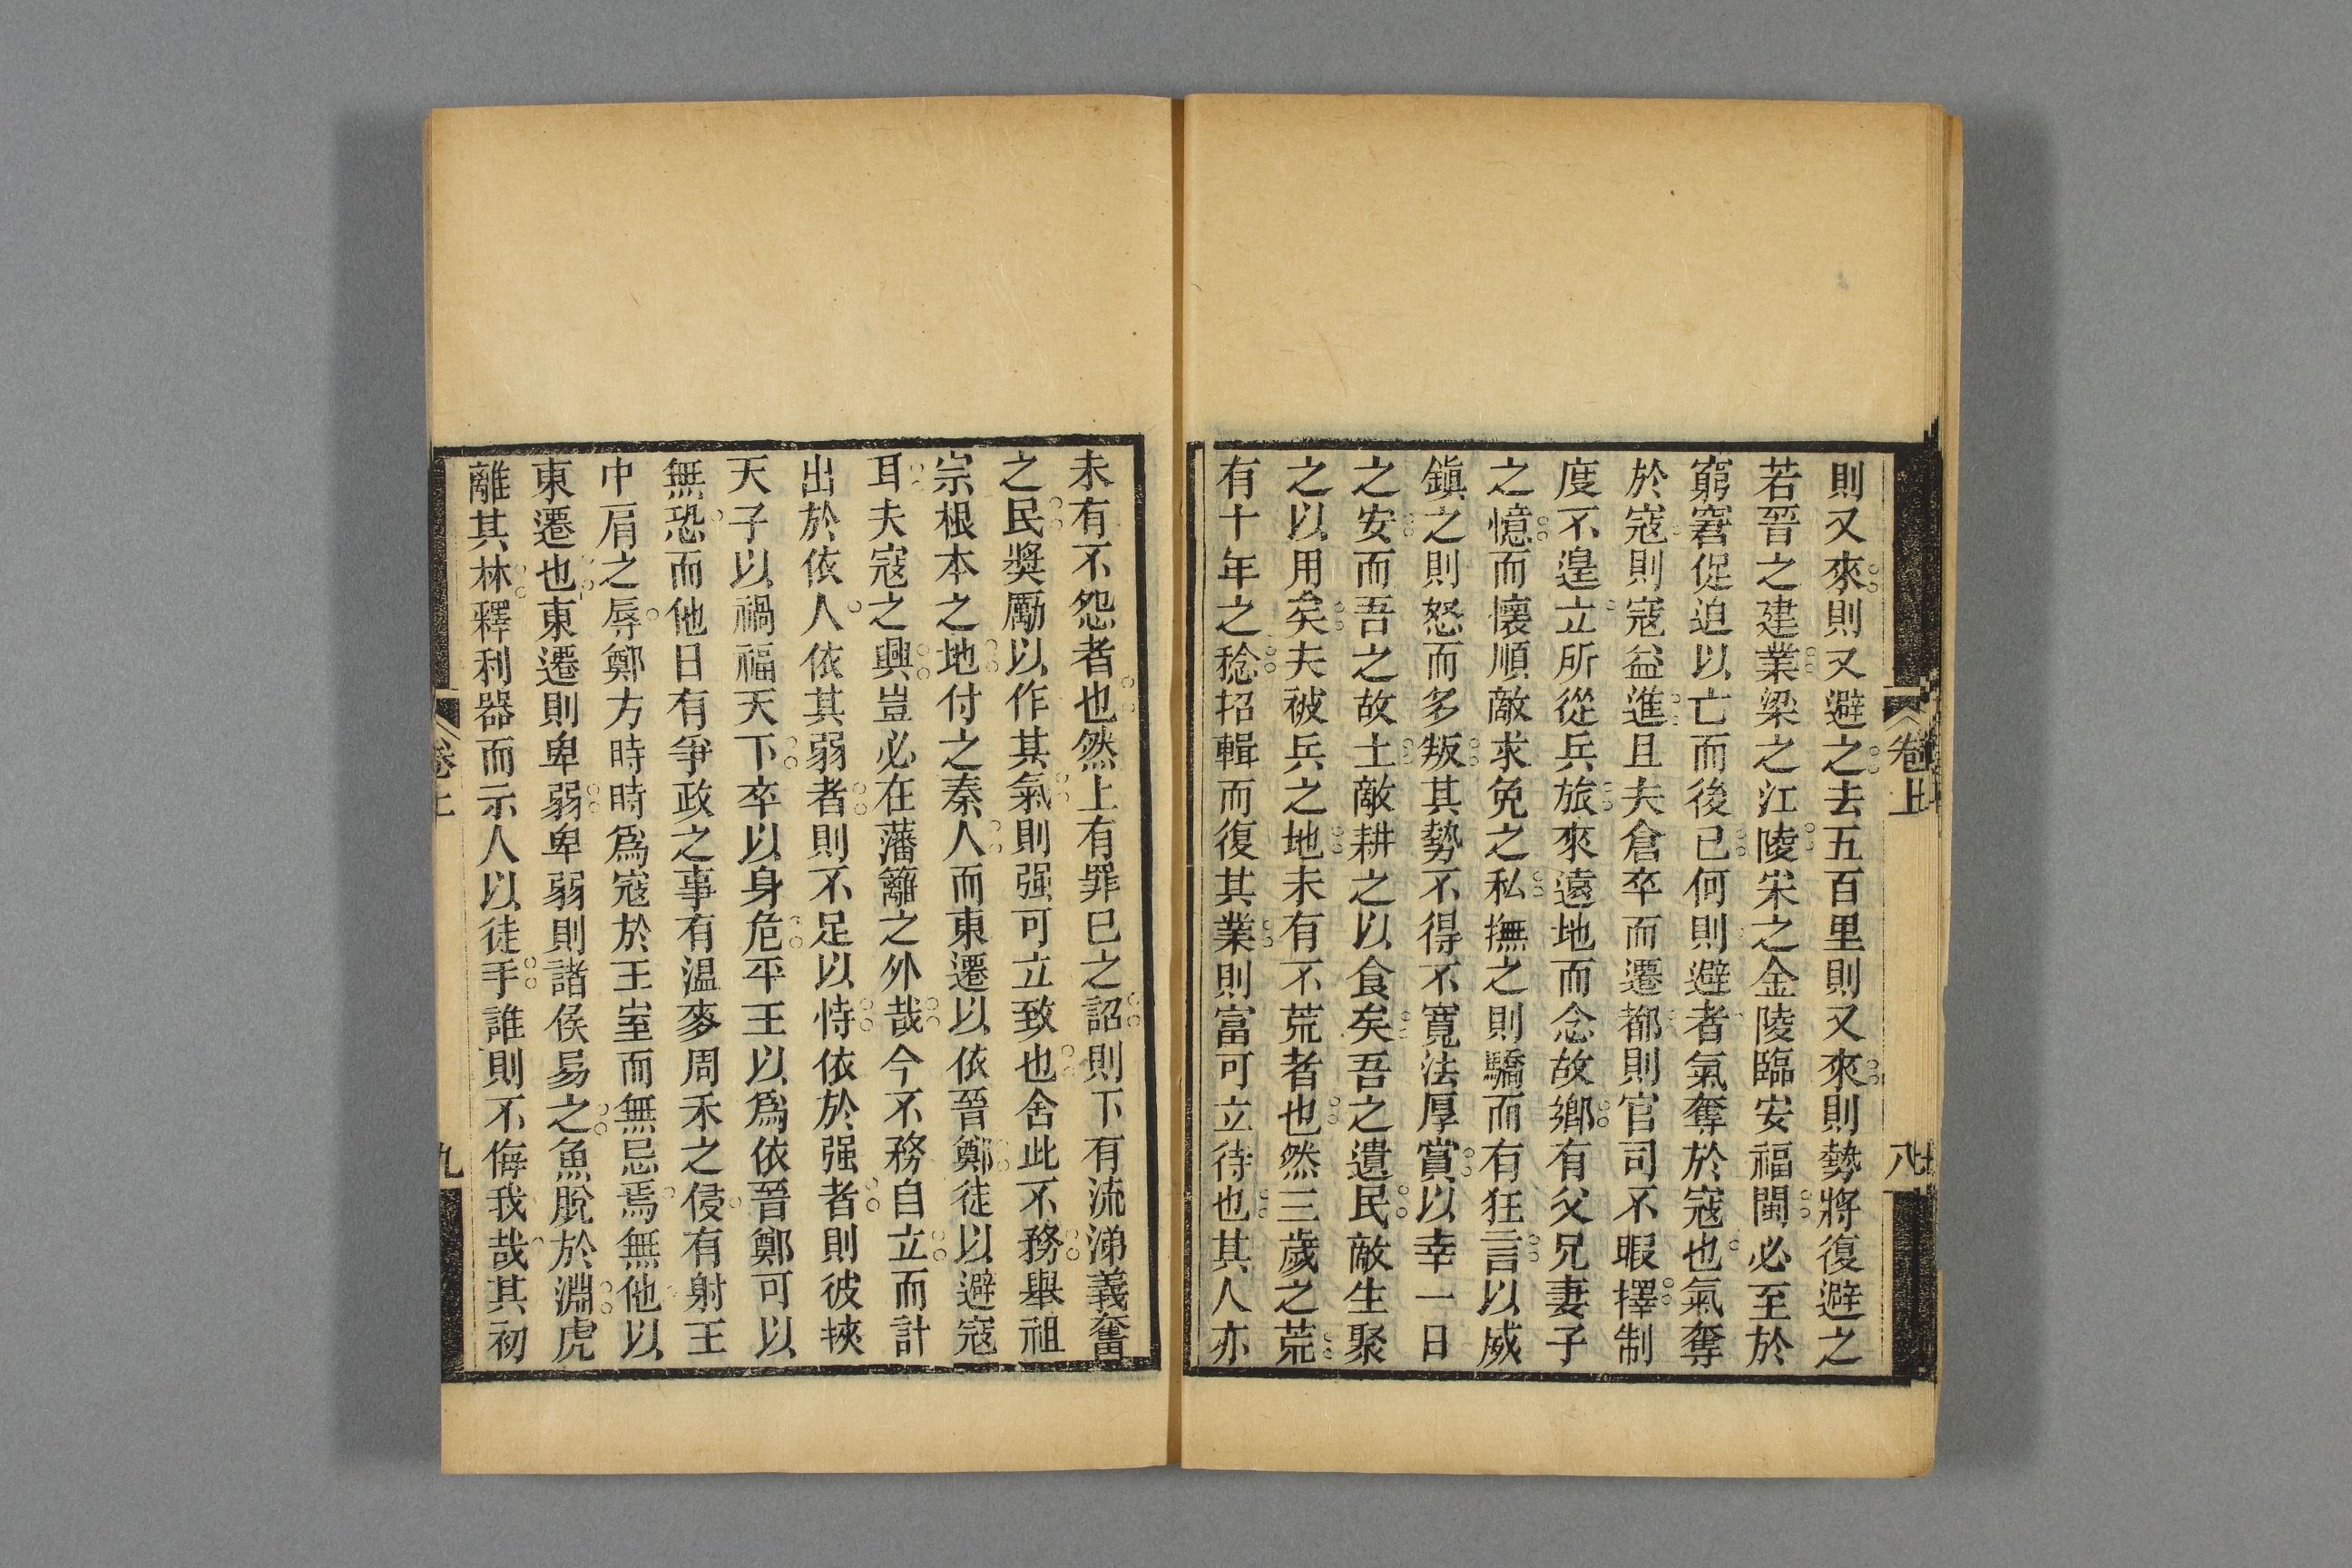 則又來則又避之去五百里則又來則勢將復避之
若晉之建業梁之江陵宋之金陵臨安福閩必至於
窮窘促迫以亡而後已何則避者氣奪於寇也氣奪
於寇則寇益進且夫倉卒而遷都則官司不暇擇制
度不遑立所從兵旅來遠地而念故鄉有父兄妻子
之憶而懷順敵求免之私撫之則驕而有狂言以威
鎭之則怒而多叛其勢不得不寬法厚賞以幸一日
之安而吾之故土敵耕之以食矣吾之遺民敵生聚
之以用矣夫被兵之地未有不荒者也然三歲之荒
有十年之稔招輯而復其業則富可立待也其人亦
卷上
八
未有不怨者也然上有罪已之詔則下有流涕義奮
之民奬厲以作其氣則强可立致也舍此不務舉祖
宗根本之地付之秦人而東遷以依晉鄭徒以避寇
耳夫寇之興豈必在藩籬之外哉今不務自立而計
出於依人依其弱者則不足以恃依於强者則彼挾
天子以禍福天下卒以身危平王以爲依晉鄭可以
無恐而他日有爭政之事有溫麥周禾之侵有射王
中肩之辱鄭方時時爲寇於王室而無忌焉無他以
東遷也東遷則卑弱卑弱則諸侯易之魚脫於淵虎
離其林釋利器而示人以徒手誰則不侮我哉其初
卷上
九